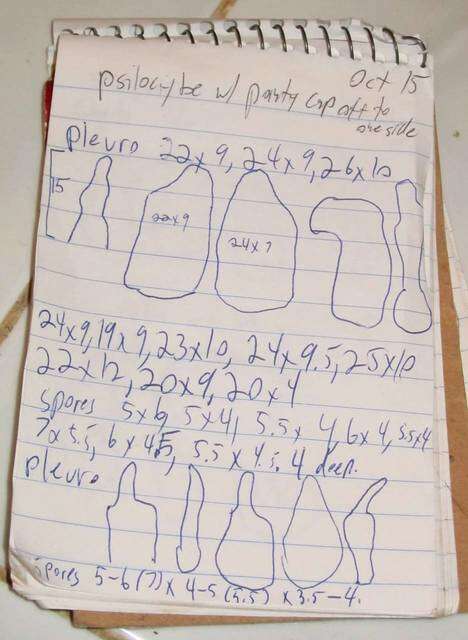 Oct 15
psilocybe w/ panty cap off to
one side
pleuro 22x9, 24x9, 26x10
15
22x9
24x7
24x9, 19x9, 23x10, 24x9.5, 25x10
22x12, 20x9, 20x4
spores 5x6, 5x4, 5.5x4, 6x4, 5.5x4
7x5.5, 6x4.5, 5.5x4.5, 4 deep.
pleuro
spores 5-6(7)x4-5(5.5)x3.5-4.